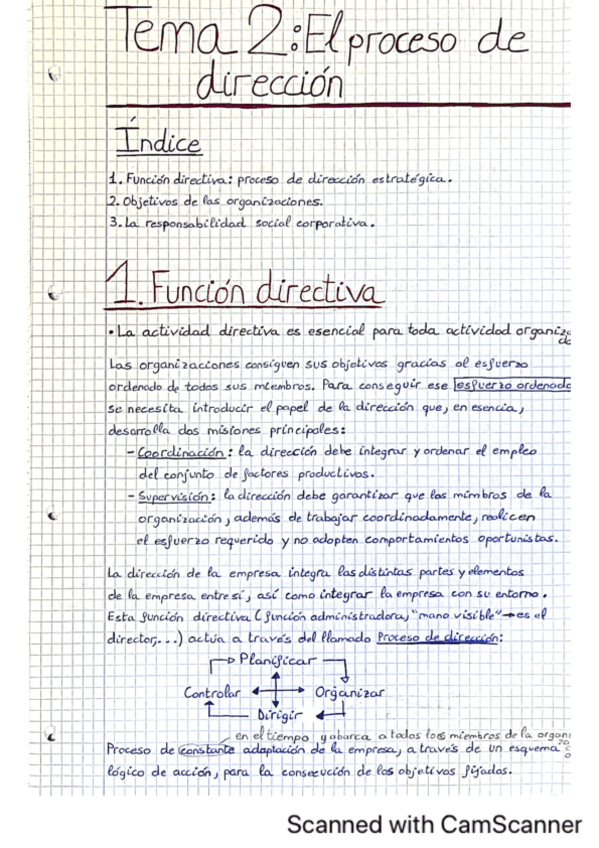 Tema 2: El proceso de
dirección
Índice
1. Función directiva: proceso de dirección estratégica.
2. Objetivos de las organizaciones.
3. La responsabilidad social corporativa.
1. Función directiva
• La actividad directiva es esencial para toda actividad organiza
da
Las organizaciones consiguen sus objetivos gracias al esfuerzo
ordenado de todos sus miembros. Para conseguir ese esfuerzo ordenado
se necesita introducir el papel de la dirección que, en esencia,
desarrolla dos misiones principales:
- Coordinación: la dirección debe integrar y ordenar el empleo
del conjunto de factores productivos.
- Supervisión: la dirección debe garantizar que los mimbros de la
organización, además de trabajar coordinadamente, realicen
el esfuerzo requerido y no adopten comportamientos oportunistas.
La dirección de la empresa integra las distintas partes y elementos
de la empresa entre sí, así como integrar la empresa con su entorno.
Esta función directiva (función administradora, "mano visible" → es el
director,...) actúa a través del llamado Proceso de dirección:
Planificar
Controlar Organizar
Dirigir
en el tiempo y abarca a todos los miembros de la organi
Proceso de constante adaptación de la empresa, a través de un esquema
lógico de acción, para la consecución de los objetivos fijados.
Scanned with CamScanner